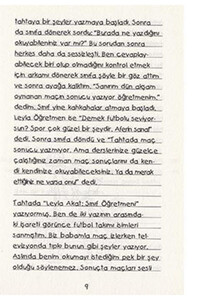 tahtaya bir şeyler yazmaya başladı. Sonra
da sınıfa dönerek sordu: "Burada ne yazdığını
okuyabileniniz var mı?" Bu sorudan sonra
herkes daha da sessizleşti. Ben cevaplay-
abilecek biri olup olmadığını kontrol etmek
için arkamı dönerek sınıfa şöyle bir göz attım
ve sonra ayağa kalktım. "Sanırım dün akşam
oynanan maçın sonucu yazıyor öğretmenim."
dedim. Sınıf yine kahkahalar atmaya başladı.
Leyla Öğretmen ise "Demek futbolu seviyor-
sun? Spor çok güzel bir şeydir. Aferin sana!"
dedi. Sonra sınıfa döndü ve "Tahtada maç
sonucu yazmıyor. Ama derslerinize güzelce
çalıştığınız zaman maç sonuçlarını da ken-
di kendinize okuyabileceksiniz. Ya da merak
ettiğiniz ne varsa onu" dedi.
Tahtada "Leyla Akat: Sınıf Öğretmeni"
yazıyormuş. Ben de iki yazının arasında-
ki işareti görünce futbol takımı isimleri
sanmıştım. Biz babamla maç izlerken tel-
evizyonda tıpkı bunun gibi şeyler yazıyor.
Aslında benim okumayı istediğim pek bir şey
olduğu söylenemez. Sonuçta maçları sesli
9